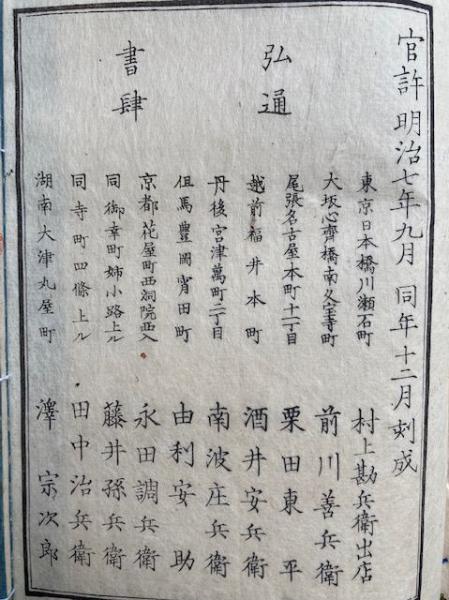 官許明治七年九月 同年十二月刻成
弘通
書肆
東京日本橋川瀬石町 村上勘兵衛出店
大坂心齊橋南久宝寺町 前川善兵衛
尾張名古屋本町十一丁目 栗田東平
越前福井本町 酒井安兵衛
丹後宮津萬町二丁目 南波庄兵衛
但馬豊岡宵田町 由利安助
京都花屋町西洞院西入 永田調兵衛
同御幸町姉小路上ル 藤井孫兵衛
同寺町四條上ル 田中治兵衛
湖南大津丸屋町 澤宗次郎